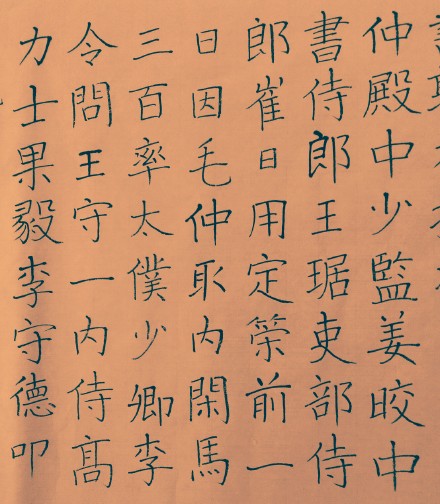 仲殿中少監姜皎中
書侍郎王琚吏部侍
郎崔日用定策前一
日因毛仲取内閑馬
三百率太僕少卿李
令問王守一内侍髙
力士果毅李守德叩